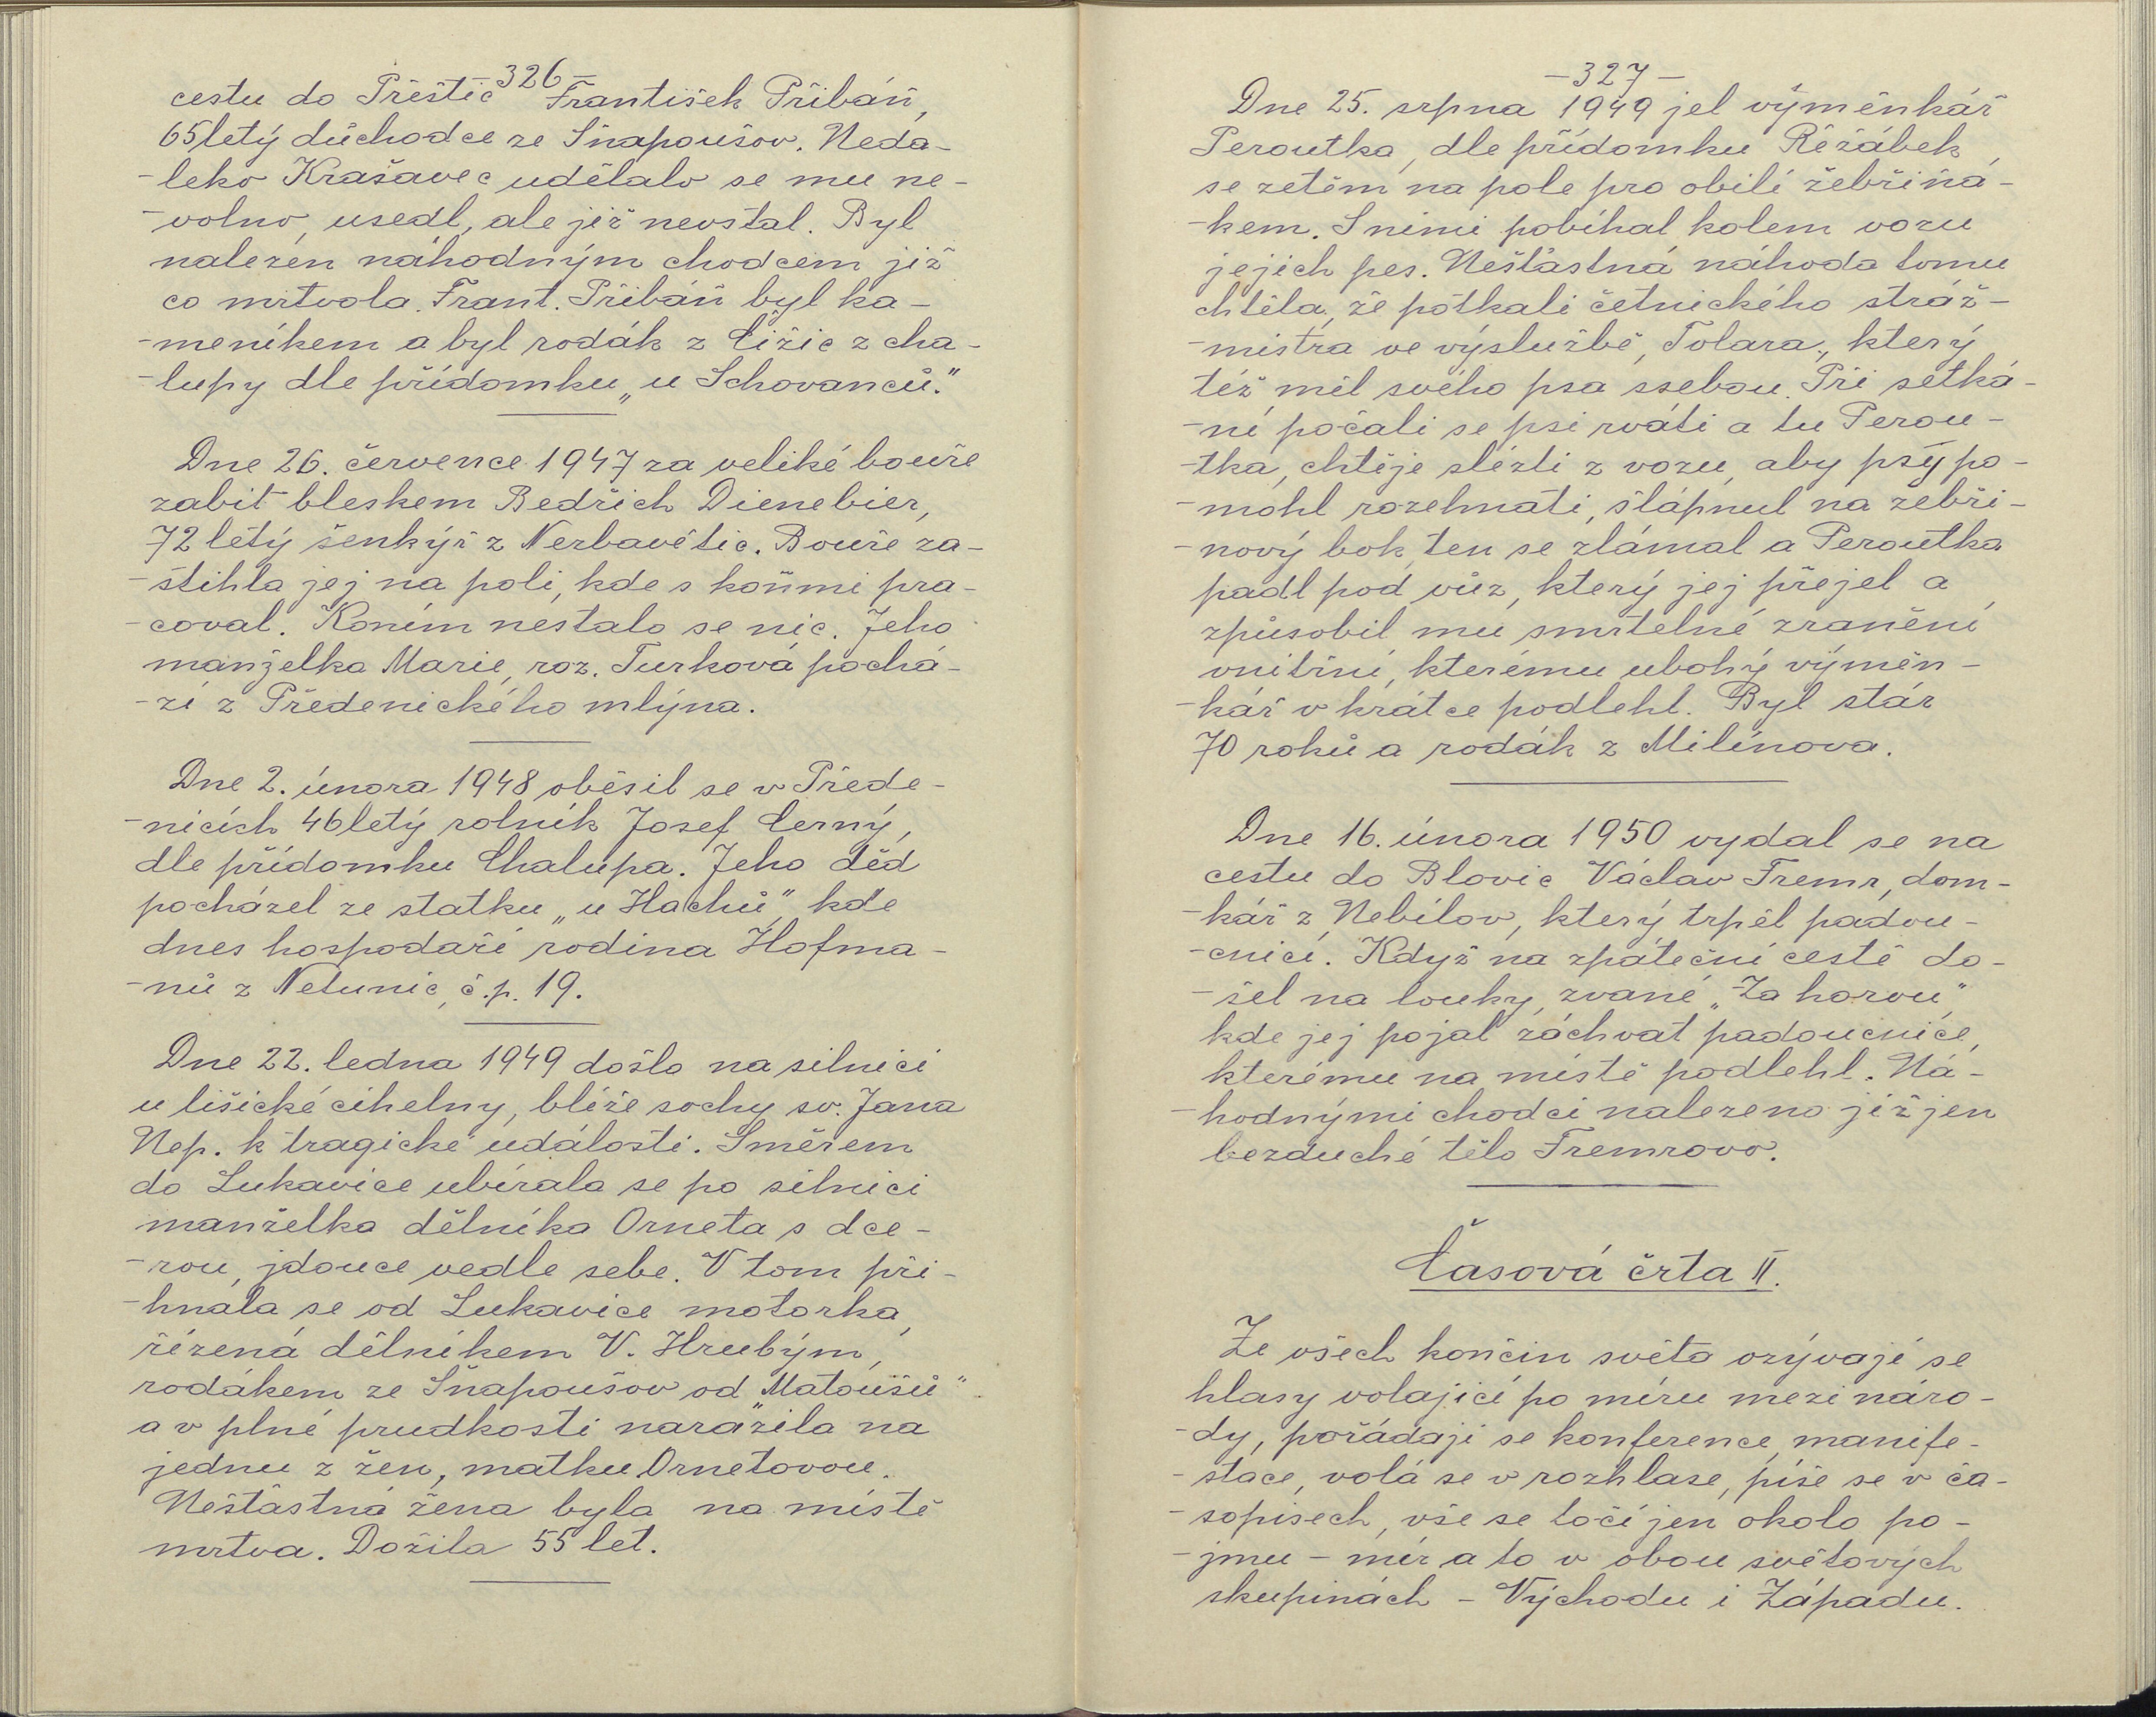 -326-
cestu do Přeštic František Přibáň,
65letý důchodce ze Snopoušov. Neda-
-leko Krašavec udělalo se mu ne-
-volno, usedl, ale již nevstal. Byl
nalezen náhodným chodcem již
co mrtvola. Frant. Přibáň byl ka-
-meníkem a byl rodák z Čižic z cha-
-lupy dle přídomku „u Schovanců."
Dne 26. července 1947 za veliké bouře
zabit bleskem Bedřich Dienebier,
72letý šenkýř z Nerbavětic. Bouře za-
-stihla jej na poli, kde s koňmi pra-
-coval. Koním nestalo se nic. Jeho
manželka Marie, roz. Turková pochá-
-zí z Předenického mlýna.
Dne 2. února 1948 oběsil se v Přede-
-nicích 46letý rolník Josef Černý,
dle přídomku Chalupa. Jeho děd
pocházel ze statku „u Hachů", kde
dnes hospodaří rodina Hofma-
-nů z Netunic, č.p. 19.
Dne 22. ledna 1949 došlo na silnici
u lišické cihelny, blíže sochy sv. Jana
Nep. k tragické události. Směrem
do Lukavice ubírala se po silnici
manželka dělníka Orneta s dce-
-rou, jdouce vedle sebe. V tom při-
-hnala se od Lukavice motorka,
řízená dělníkem V. Hrubým,
rodákem ze Snopoušov od „Matoušů"
a v plné prudkosti narazila na
jednu z žen, matku Ornetovou.
Nešťastná žena byla na místě
mrtva. Dožila 55 let.
-327-
Dne 25. srpna 1949 jel výměnkář
Peroutka, dle přídomku Řežábek,
se zetěm na pole pro obilí žebřiňá-
-kem. S nimi pobíhal kolem vozu
jejich pes. Nešťastná náhoda tomu
chtěla, že potkali četnického stráž-
-mistra ve výslužbě, Tolara, který
též měl svého psa ssebou. Při setká-
-ní počali se psi rváti a tu Perou-
-tka, chtěje slézti z vozu, aby psy po-
-mohl rozehnati, šlápnul na žebři-
-nový bok, ten se zlámal a Peroutka
padl pod vůz, který jej přejel a
způsobil mu smrtelné zranění
vnitřní, kterému ubohý výměn-
-kář v krátce podlehl. Byl stár
70 roků a rodák z Milínova.
Dne 16. února 1950 vydal se na
cestu do Blovic Václav Fremr, dom-
-kář z Nebílov, který trpěl padou-
-cnicí. Když na zpáteční cestě do-
-šel na louky, zvané „Za horou",
kde jej pojal záchvat padoucnice,
kterému na místě podlehl. Ná-
-hodnými chodci nalezeno již jen
bezduché tělo Fremrovo.
Časová črta II.
Ze všech končin světa ozývají se
hlasy volající po míru mezi náro-
-dy, pořádají se konference, manife-
-stace, volá se v rozhlase, píše se v ča-
-sopisech, vše se točí jen okolo po-
-jmu - mír a to v obou světových
skupinách - Východu i Západu.